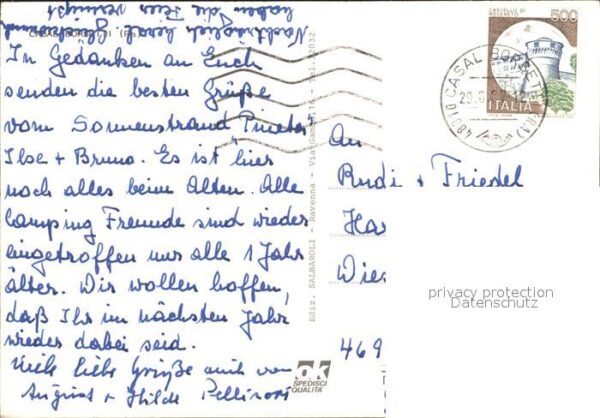 Nachträglich herzl.
haben die Feier vermißt
CASAL BORSETTI (Ra)
In Gedanken an Euch
senden die besten Grüße
vom Sonnenstrand "Pineta"
Ilse + Bruno. Es ist hier
noch alles beim Alten. Alle
Camping Freunde sind wieder
eingetroffen nur alle 1 Jahr
älter. Wir wollen hoffen,
daß Ihr im nächsten Jahr
wieder dabei seid.
Viele liebe Grüße auch von
August + Hilde
Ediz. SALBAROLI - Ravenna - Via
ok
SPEDISCI
QUALITÀ
CASTELLO DI
ROVERETO
500
ITALIA
48010 CASAL BORSETTI (RA)
An
Rudi + Friedel
Ha
Wie
469
privacy protection
Datenschutz